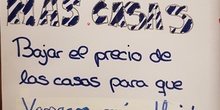 MÁS CASAS
Bajar el precio de
las casas para que